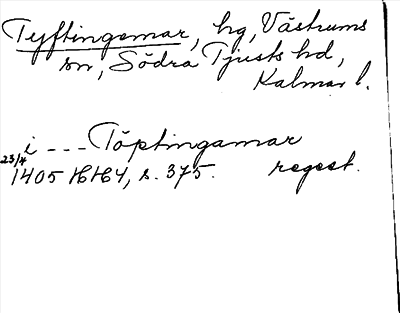 Tyftingemar, hg, Västrums
sn, Södra Tjusts hd,
Kalmar l.
i --- Töptingamar
23/4
1405 HH4, s. 375. regest.